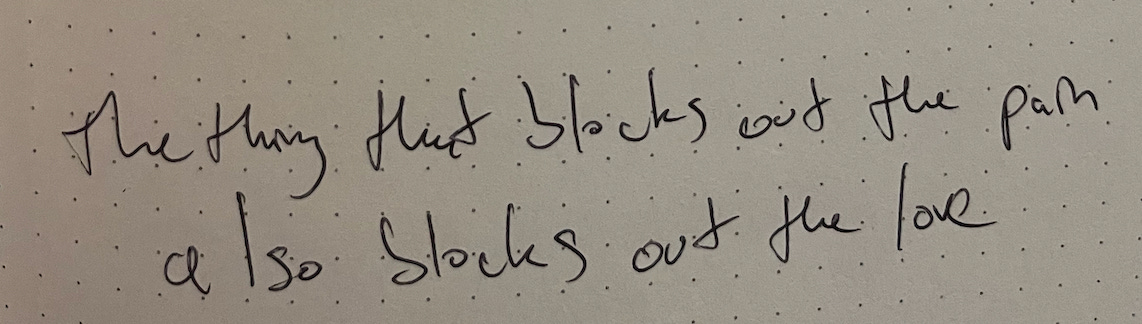 The thing that blocks out the pain
also blocks out the love